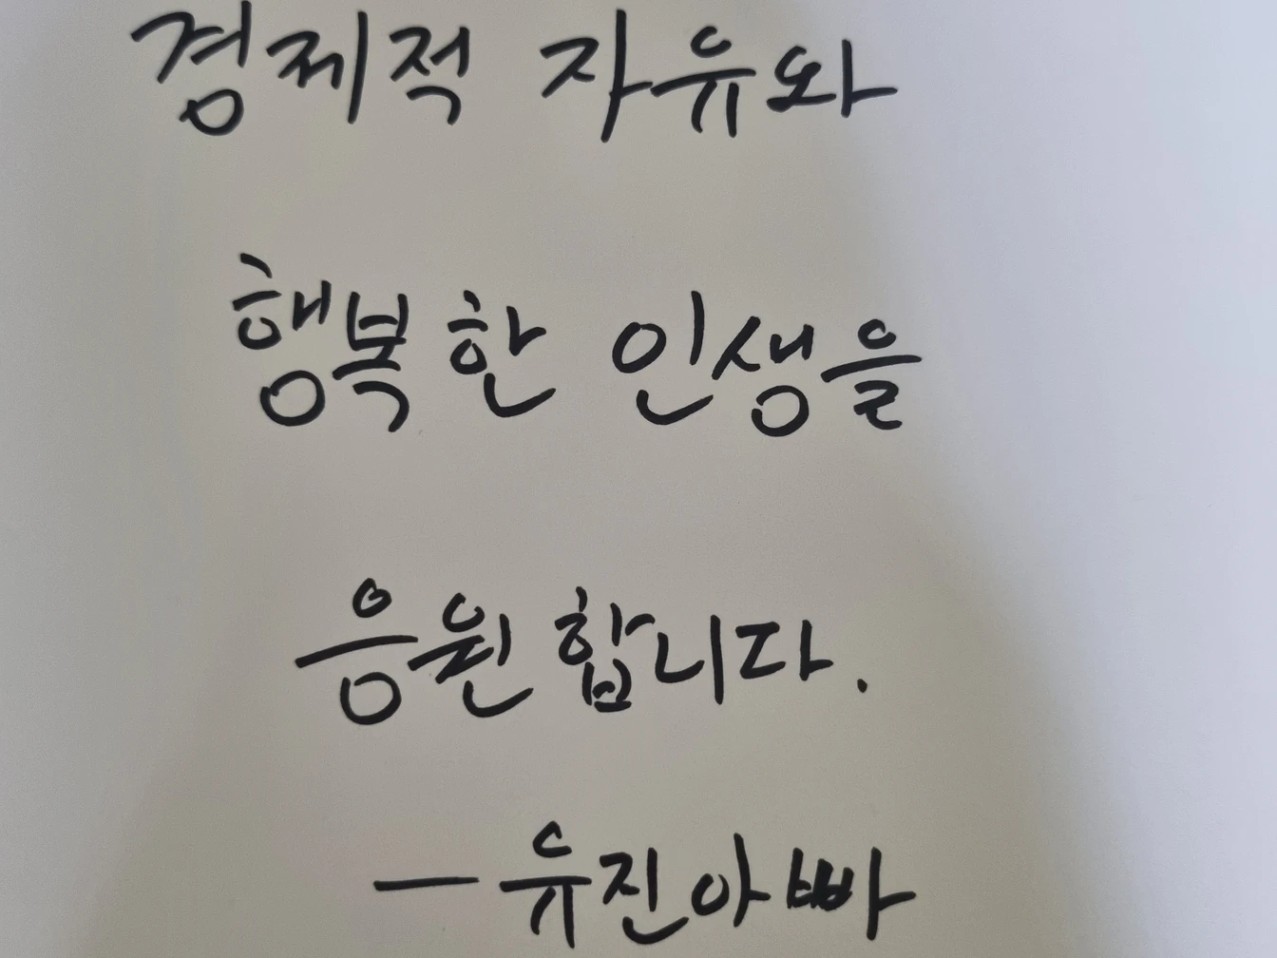 경제적 자유와
행복한 인생을
응원합니다.
- 유진아빠